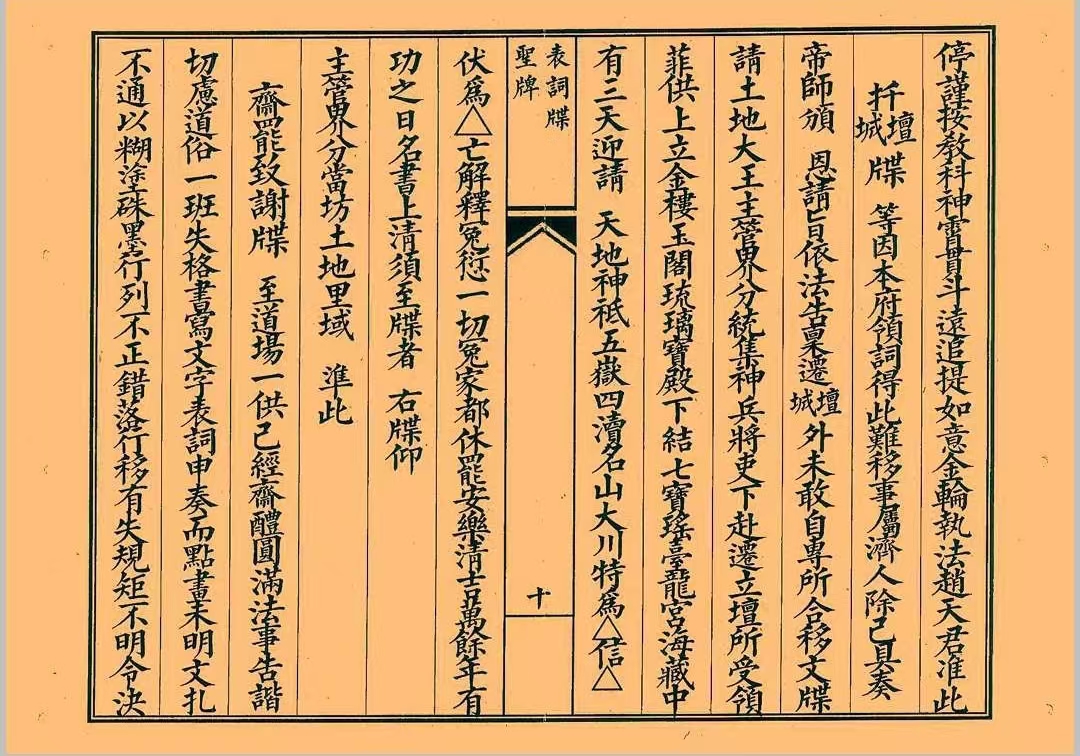 停謹按教科神霄貫斗遠追提如意金輪執法趙天君准此
扦壇城牒 等因本府領詞得此難移事屬濟人除已具奏
帝師頒 恩請旨依法告稟遷壇城外未敢自專所合移文牒
請土地大王主管界分統集神兵將吏下赴遷立壇所受領
菲供上立金樓玉閣琉璃寶殿下結七寶瑤臺龍宮海藏中
有三天迎請 天地神祇五嶽四瀆名山大川特為△信△
表詞牒
聖牌
十
伏為△亡解釋冤愆一切冤家都休罷安樂清吉萬餘年有
功之日名書上清須至牒者 右牒仰
主管界分當坊土地里域 準此
齋罷致謝牒 至道場一供已經齋醴圓滿法事告諧
切慮道俗一班失格書寫文字表詞申奏而點畫未明文扎
不通以糊塗硃墨行列不正錯落仃移有失規矩不明令決